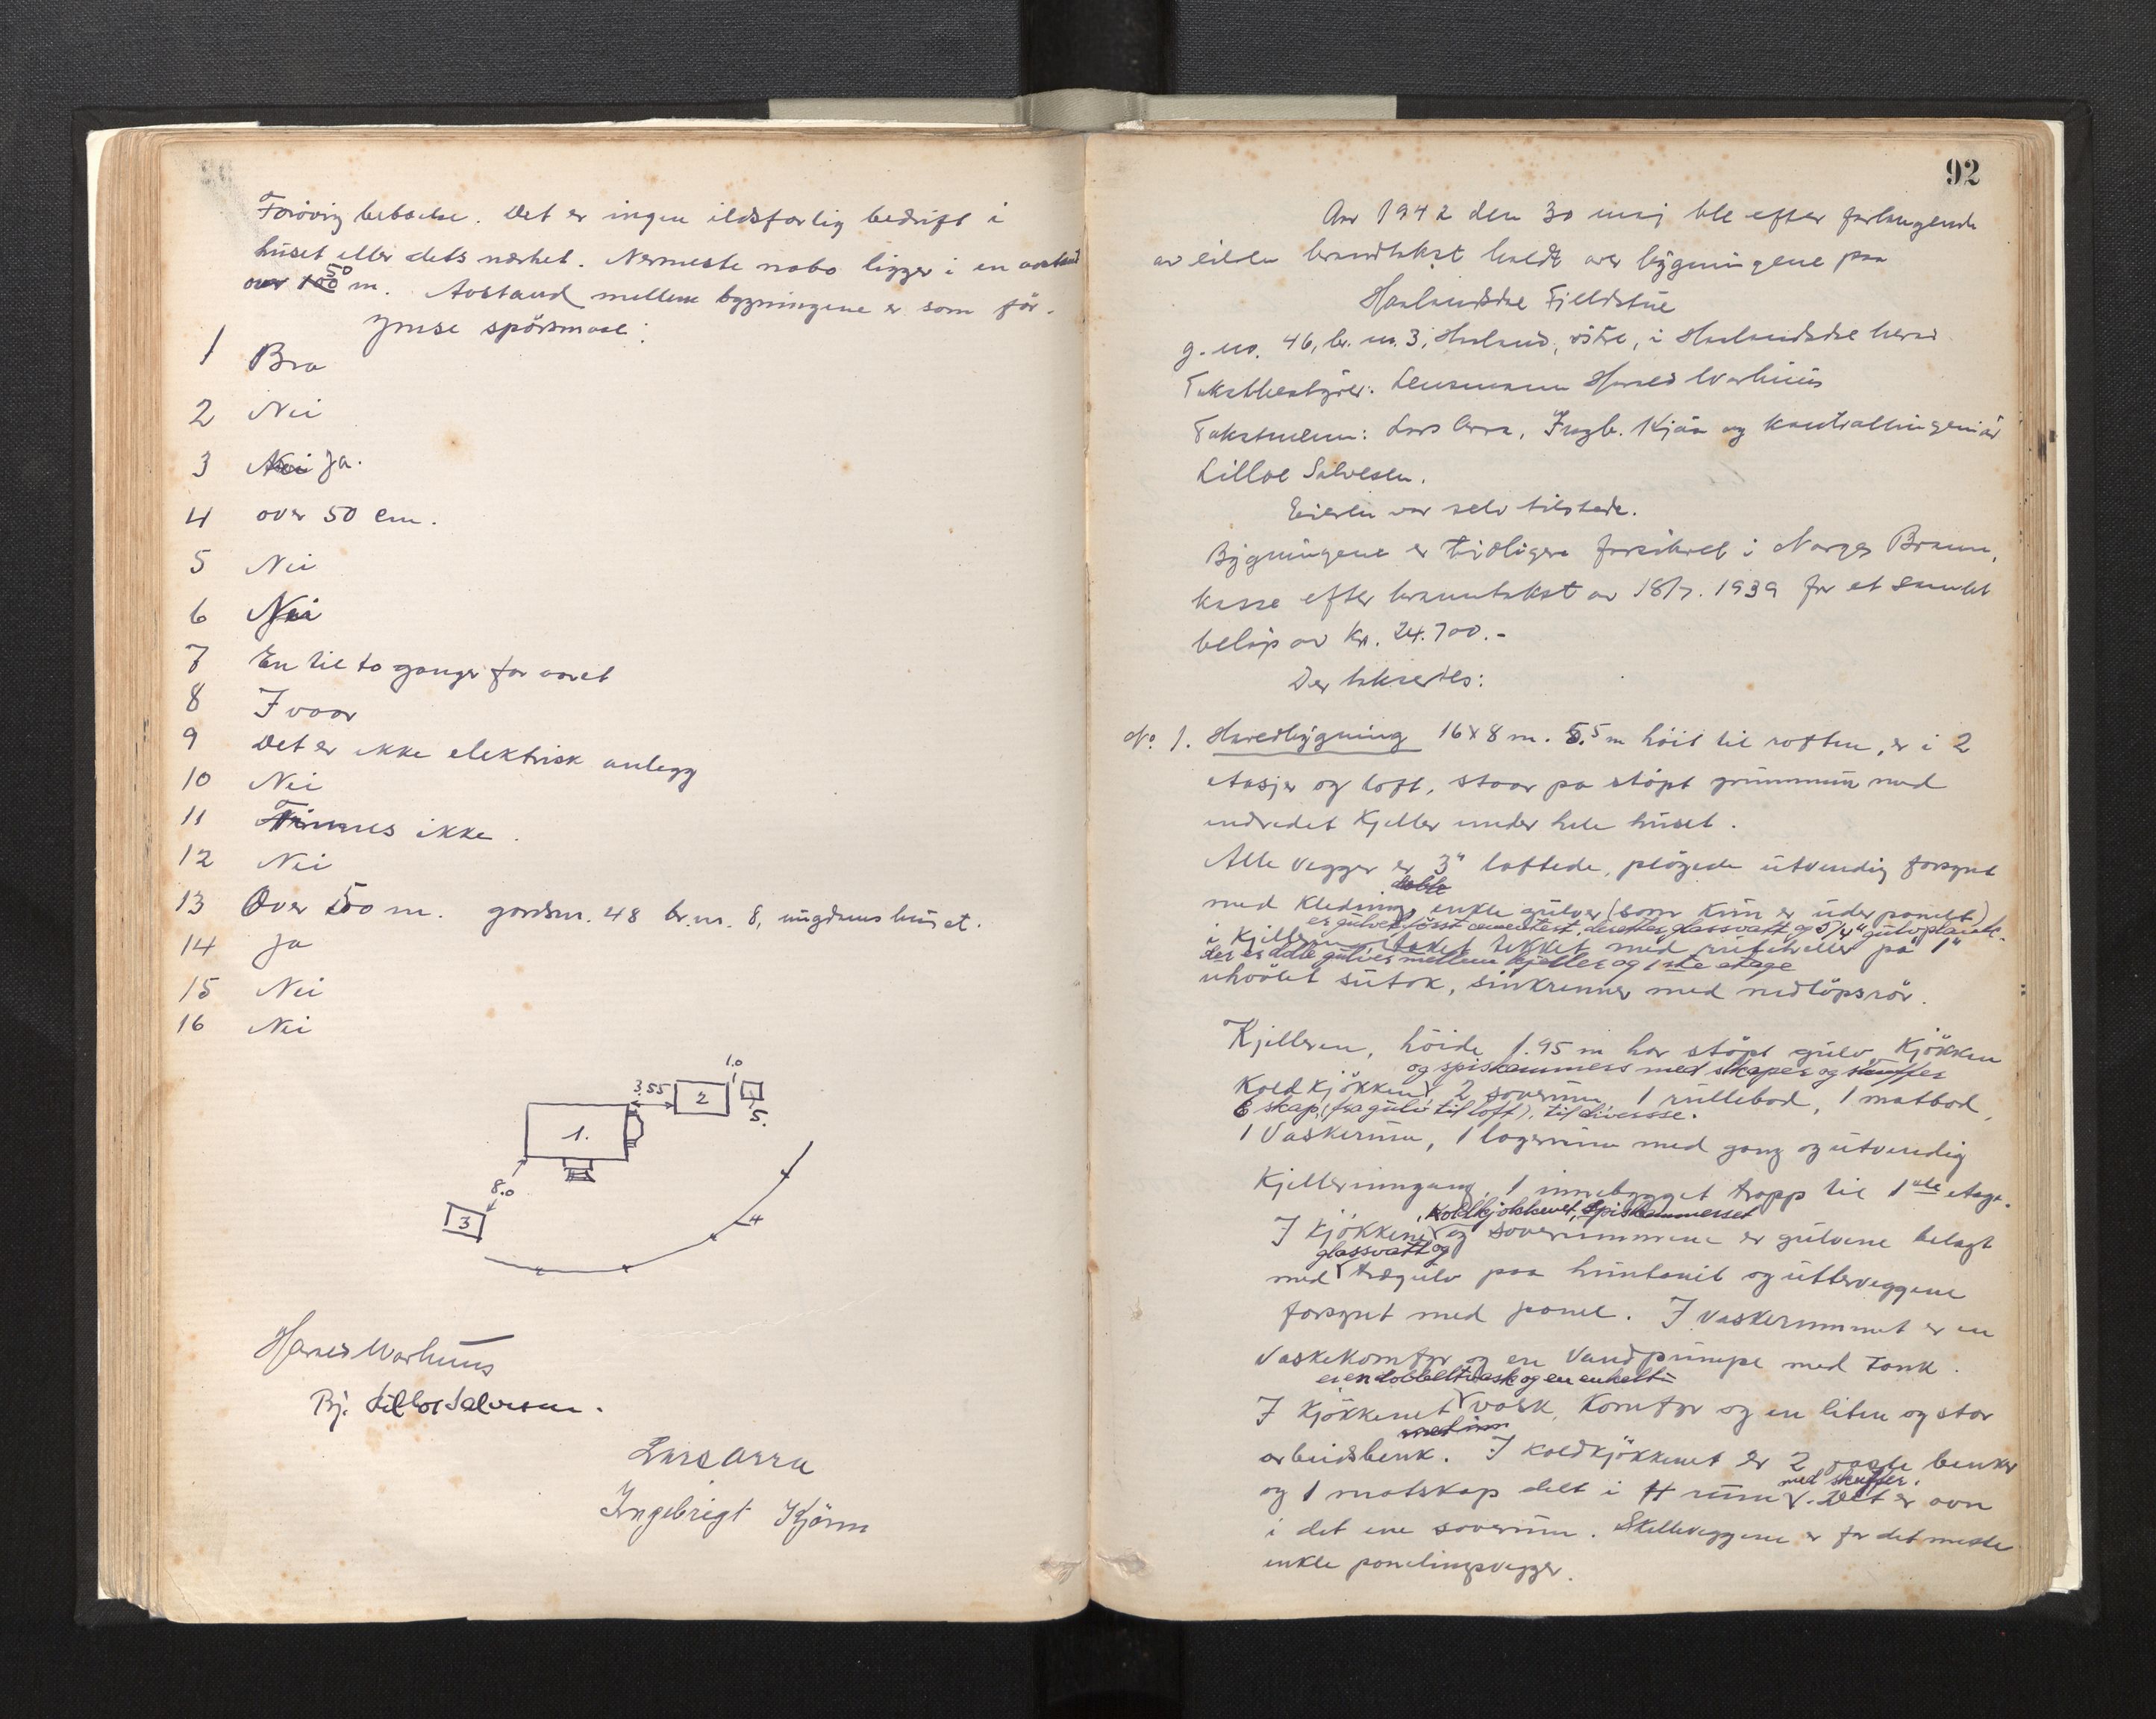 Forøvrig beboelse. Det er ingen ildsfarlig bedrift i
huset eller dets nærhet. Nermeste nabo ligger i en avstand
over 100 50 m. Avstand mellem bygningene er som før.
ymse spörsmaal:
1 Bra
2 Nei
3 Nei Ja.
4 over 50 cm.
5 Nei
6 Nei
7 En til to ganger for aaret
8 I vaar
9 Det er ikke elektrisk anlegg
10 Nei
11 Finnes ikke.
12 Nei
13 Over 500 m. gardsnr. 48 br.nr. 8, ungdomshuset.
14 Ja
15 Nei
16 Nei
1.0
3.55
2
5.
1.
8.0
3
4
Harald Warhuus
Bj. Lilloe Salvesen.
Lars Arra
Ingebrigt Kjönn
92
Aar 1942 den 30 mai ble efter forlangende
av eieren branntakst holdt over bygningene paa
Haalandsdal Fjeldstue
g. no. 46, br. nr. 3, Haaland, östre, i Haalandsdal herad
Takstbestyrer: Lensmann Harald Warhuus
Takstmenn: Lars Arra, Ingb. Kjön og kontrollingeniör
Lilloe Salvesen.
Eieren var selv tilstede.
Bygningene er tidligere forsikret i Norges Brann,
kasse efter branntakst av 18/7. 1939 for et samlet
beløp av kr. 24.700.-
Der takseres:
No 1. Hovedbygning 16x8 m. 5.5 m höit til roften, er i 2
etasjer og loft, staar pa stöpt grunnmur med
indredet kjeller under hele huset.
Alle vegger er 3" laftede, plögede utvendig forsynt
doble
med kledning, enkle gulver (som kun er underpanelt)
er gulvet først cementert, derefter glassvatt og 5/4" gulvplank.
i kjelleren taket tekket med rutheller på 1"
der er doble gulver mellem kjeller og 1ste etage
uhövlet sutak, sinkrenner med nedlöpsrör.
Kjelleren, höide 1.95 m har stöpt gulv, kjökken
og spiskammers med skaper og skuffer
koldkjökken, 2 soverum, 1 rullebod, 1 matbod,
6 skap, (fra gulv til loft), til diverse.
1 Vaskerum, 1 lagerrum med gang og utvendig
kjellerinngang, 1 innebygget trapp til 1ste etage.
, koldkjökkenet, spiskammerset
I kjökkenet og soverummene er gulvene belagt
glassvatt og
med tregulv paa huntonit og ytterveggene
forsynt med panel. I vaskerummet er en
Vaskekomfyr og en Vandpumpe med tank.
er en dobbelt vask og en enkelt
I kjökkenet vask, komfyr og en liten og stor
arbeidsbenk. I koldkjökkenet er 2 vaste benker
med skuffer.
og 1 matskap delt i 4 rum. Det er ovn
i det ene soverum. Skilleveggene er for det meste
enkle panelingsvegger.